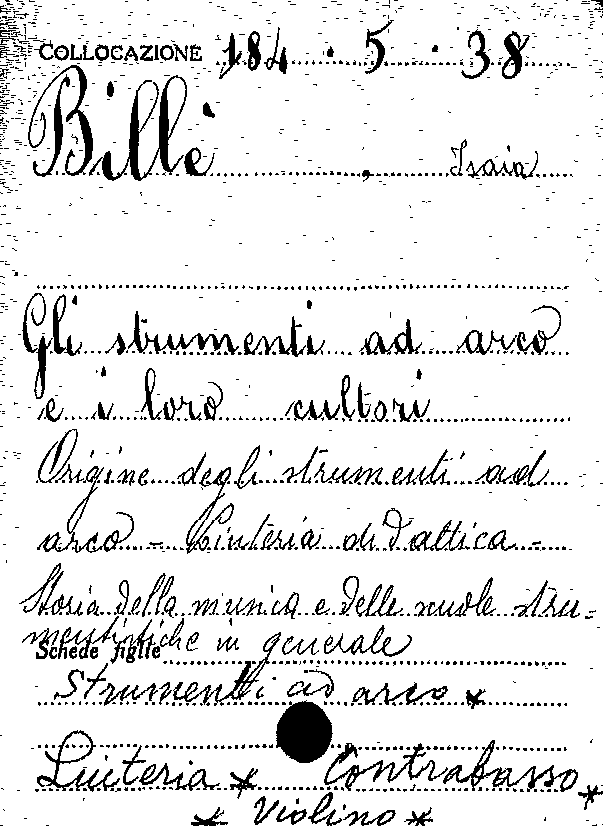 COLLOCAZIONE 184 . 5 . 38
Billè , Isaia
Gli strumenti ad arco
e i loro cultori
Origine degli strumenti ad
arco - Liuteria didattica -
Storia della musica e delle scuole stru-
mentistiche in generale
Schede figlie
Strumenti ad arco *
Liuteria * Contrabasso *
* Violino *